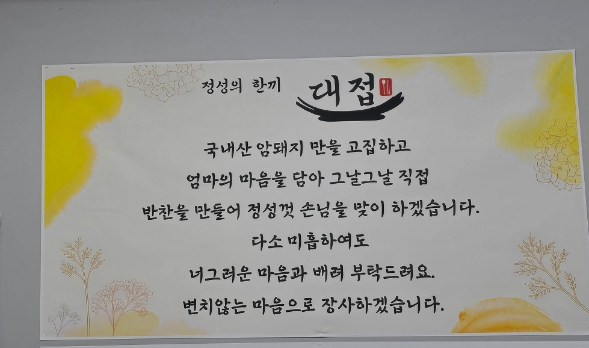 정성의 한끼 대접
국내산 암돼지 만을 고집하고
엄마의 마음을 담아 그날그날 직접
반찬을 만들어 정성껏 손님을 맞이 하겠습니다.
다소 미흡하여도
너그러운 마음과 배려 부탁드려요.
변치않는 마음으로 장사하겠습니다.